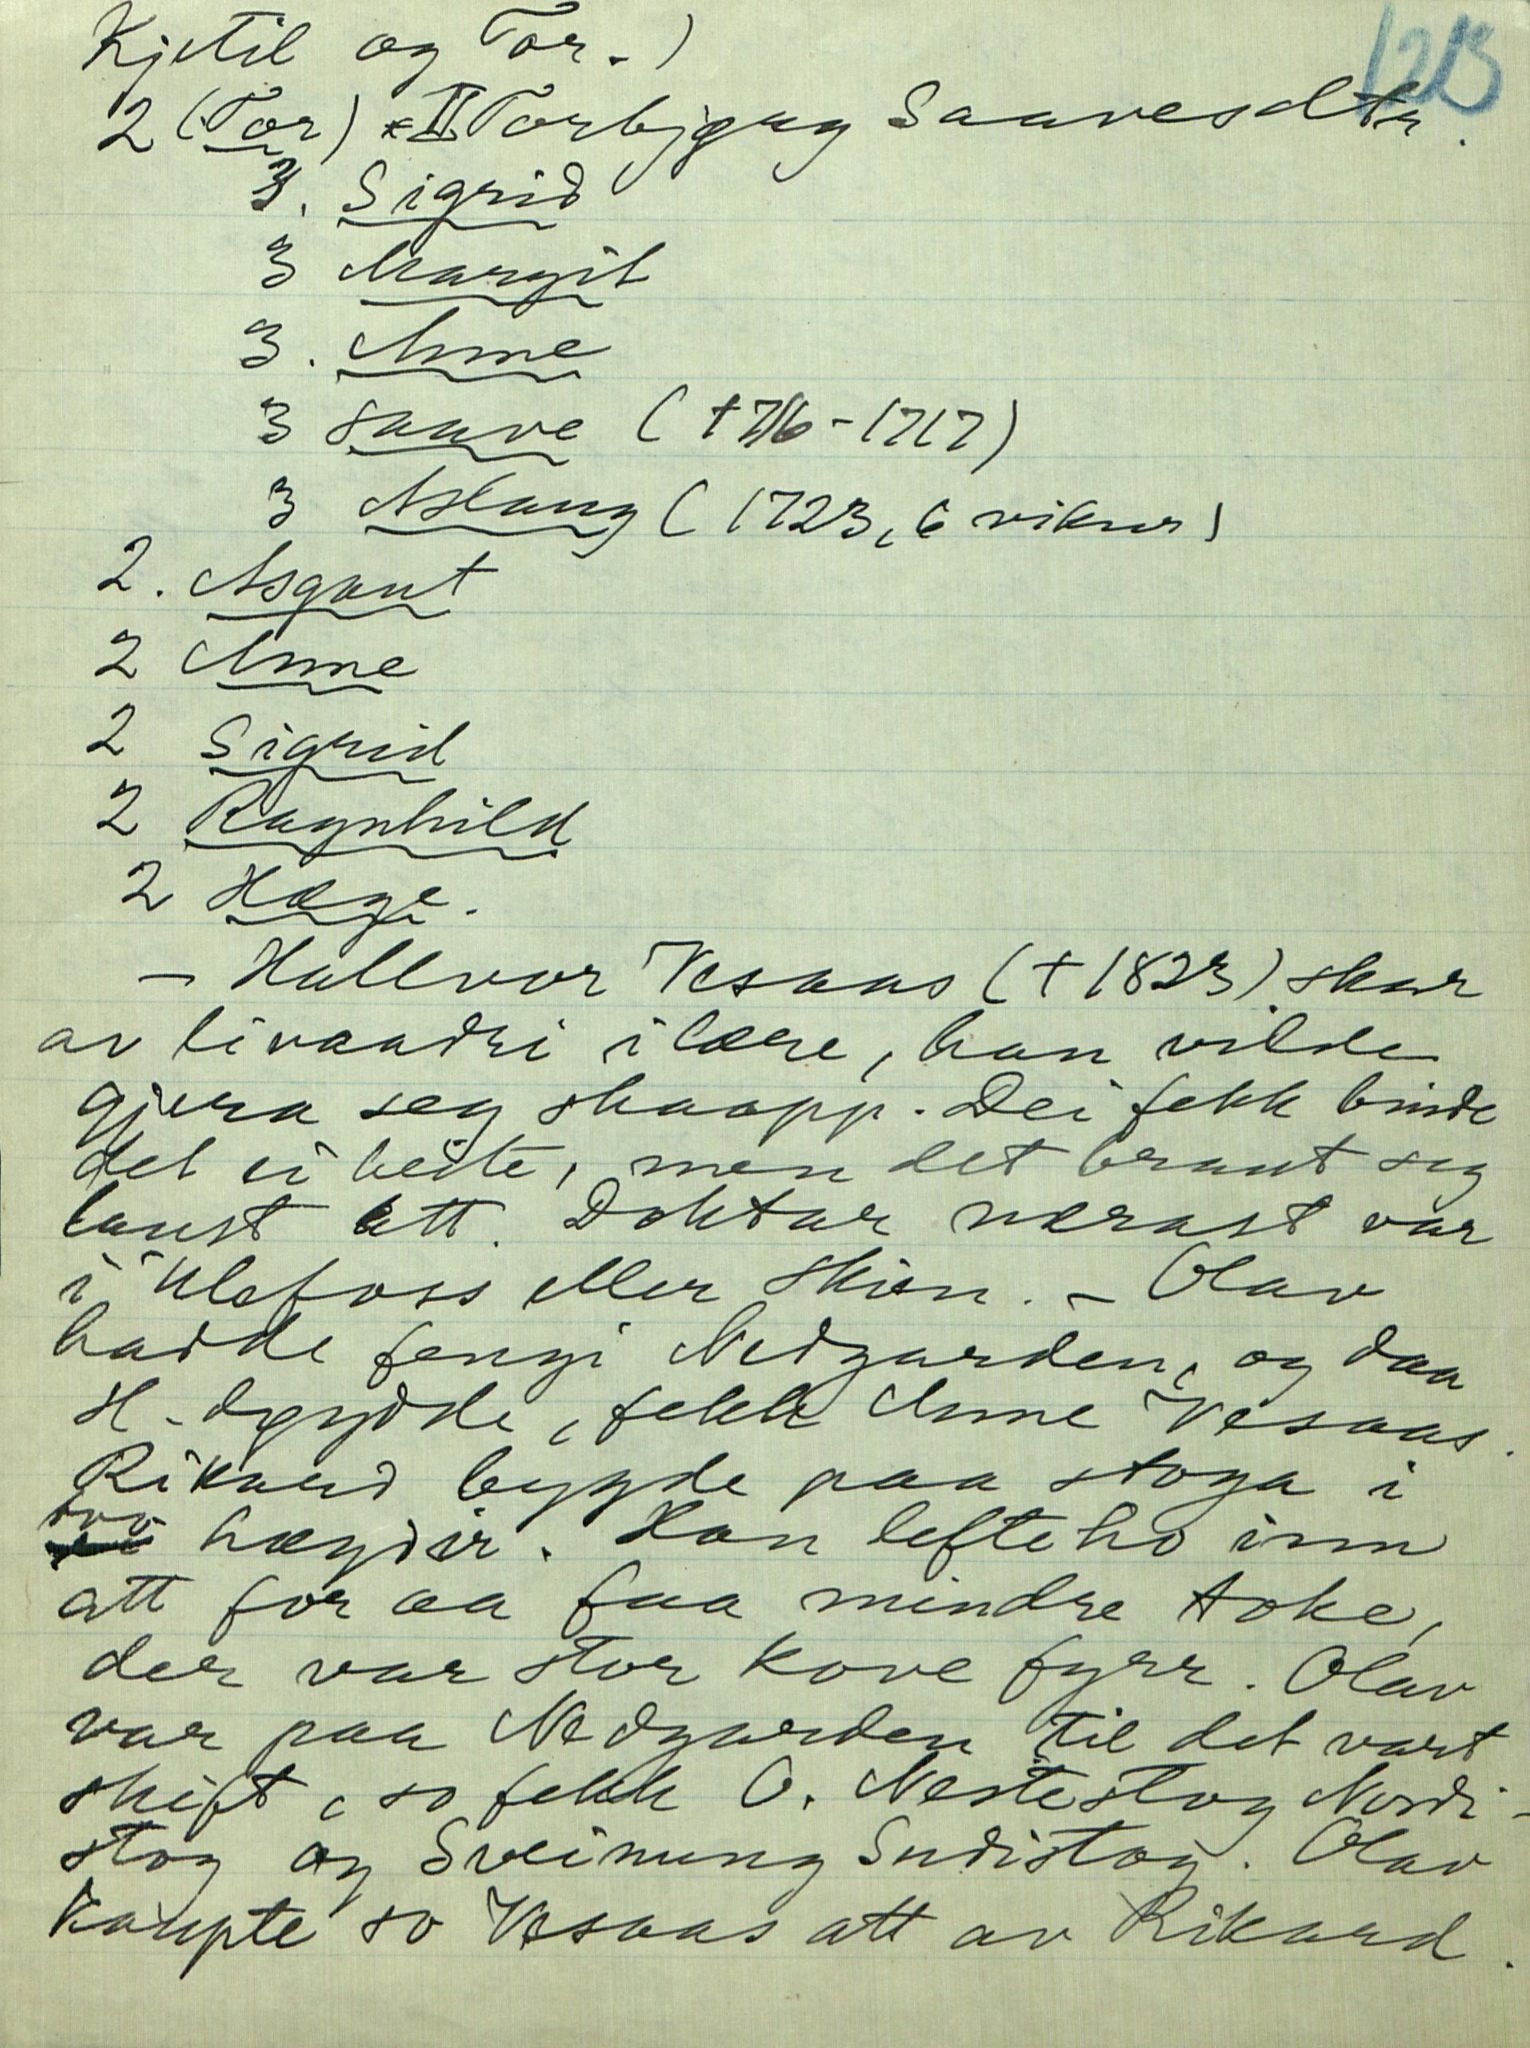 123
Kjetil og Tor.)
2 (Tor) × II Torbjørg Saavesdtr.
3. Sigrid
3 Margit
3. Anne
3 Saave (1716-1717)
3 Aslaug (1723, 6 vikur)
2. Asgaut
2 Anne
2 Sigrid
2 Ragnhild
2 Hæge.
- Hallvor Vesaas (+ 1823) skar
av livaadri i lære, han vilde
gjera seg skaapp. Dei fekk binde
det i beite, men det braut seg
laust att. Doktar nærast var
i Ulefoss eller Skien. - Olav
hadde fengi Nedgarden, og daa
H. døydde, fekk Anne Vesaas.
Rikard bygde paa stoga i
tvo høgdir. Han lefte ho inn
att for aa faa mindre toke,
der var stor kove fyrr. Olav
var paa Nedgarden til det vart
skift, so fekk O. Nestestog Nordi-
stog og Sveinung Sudistog. Olav
kaupte so Vesaas att av Rikard.